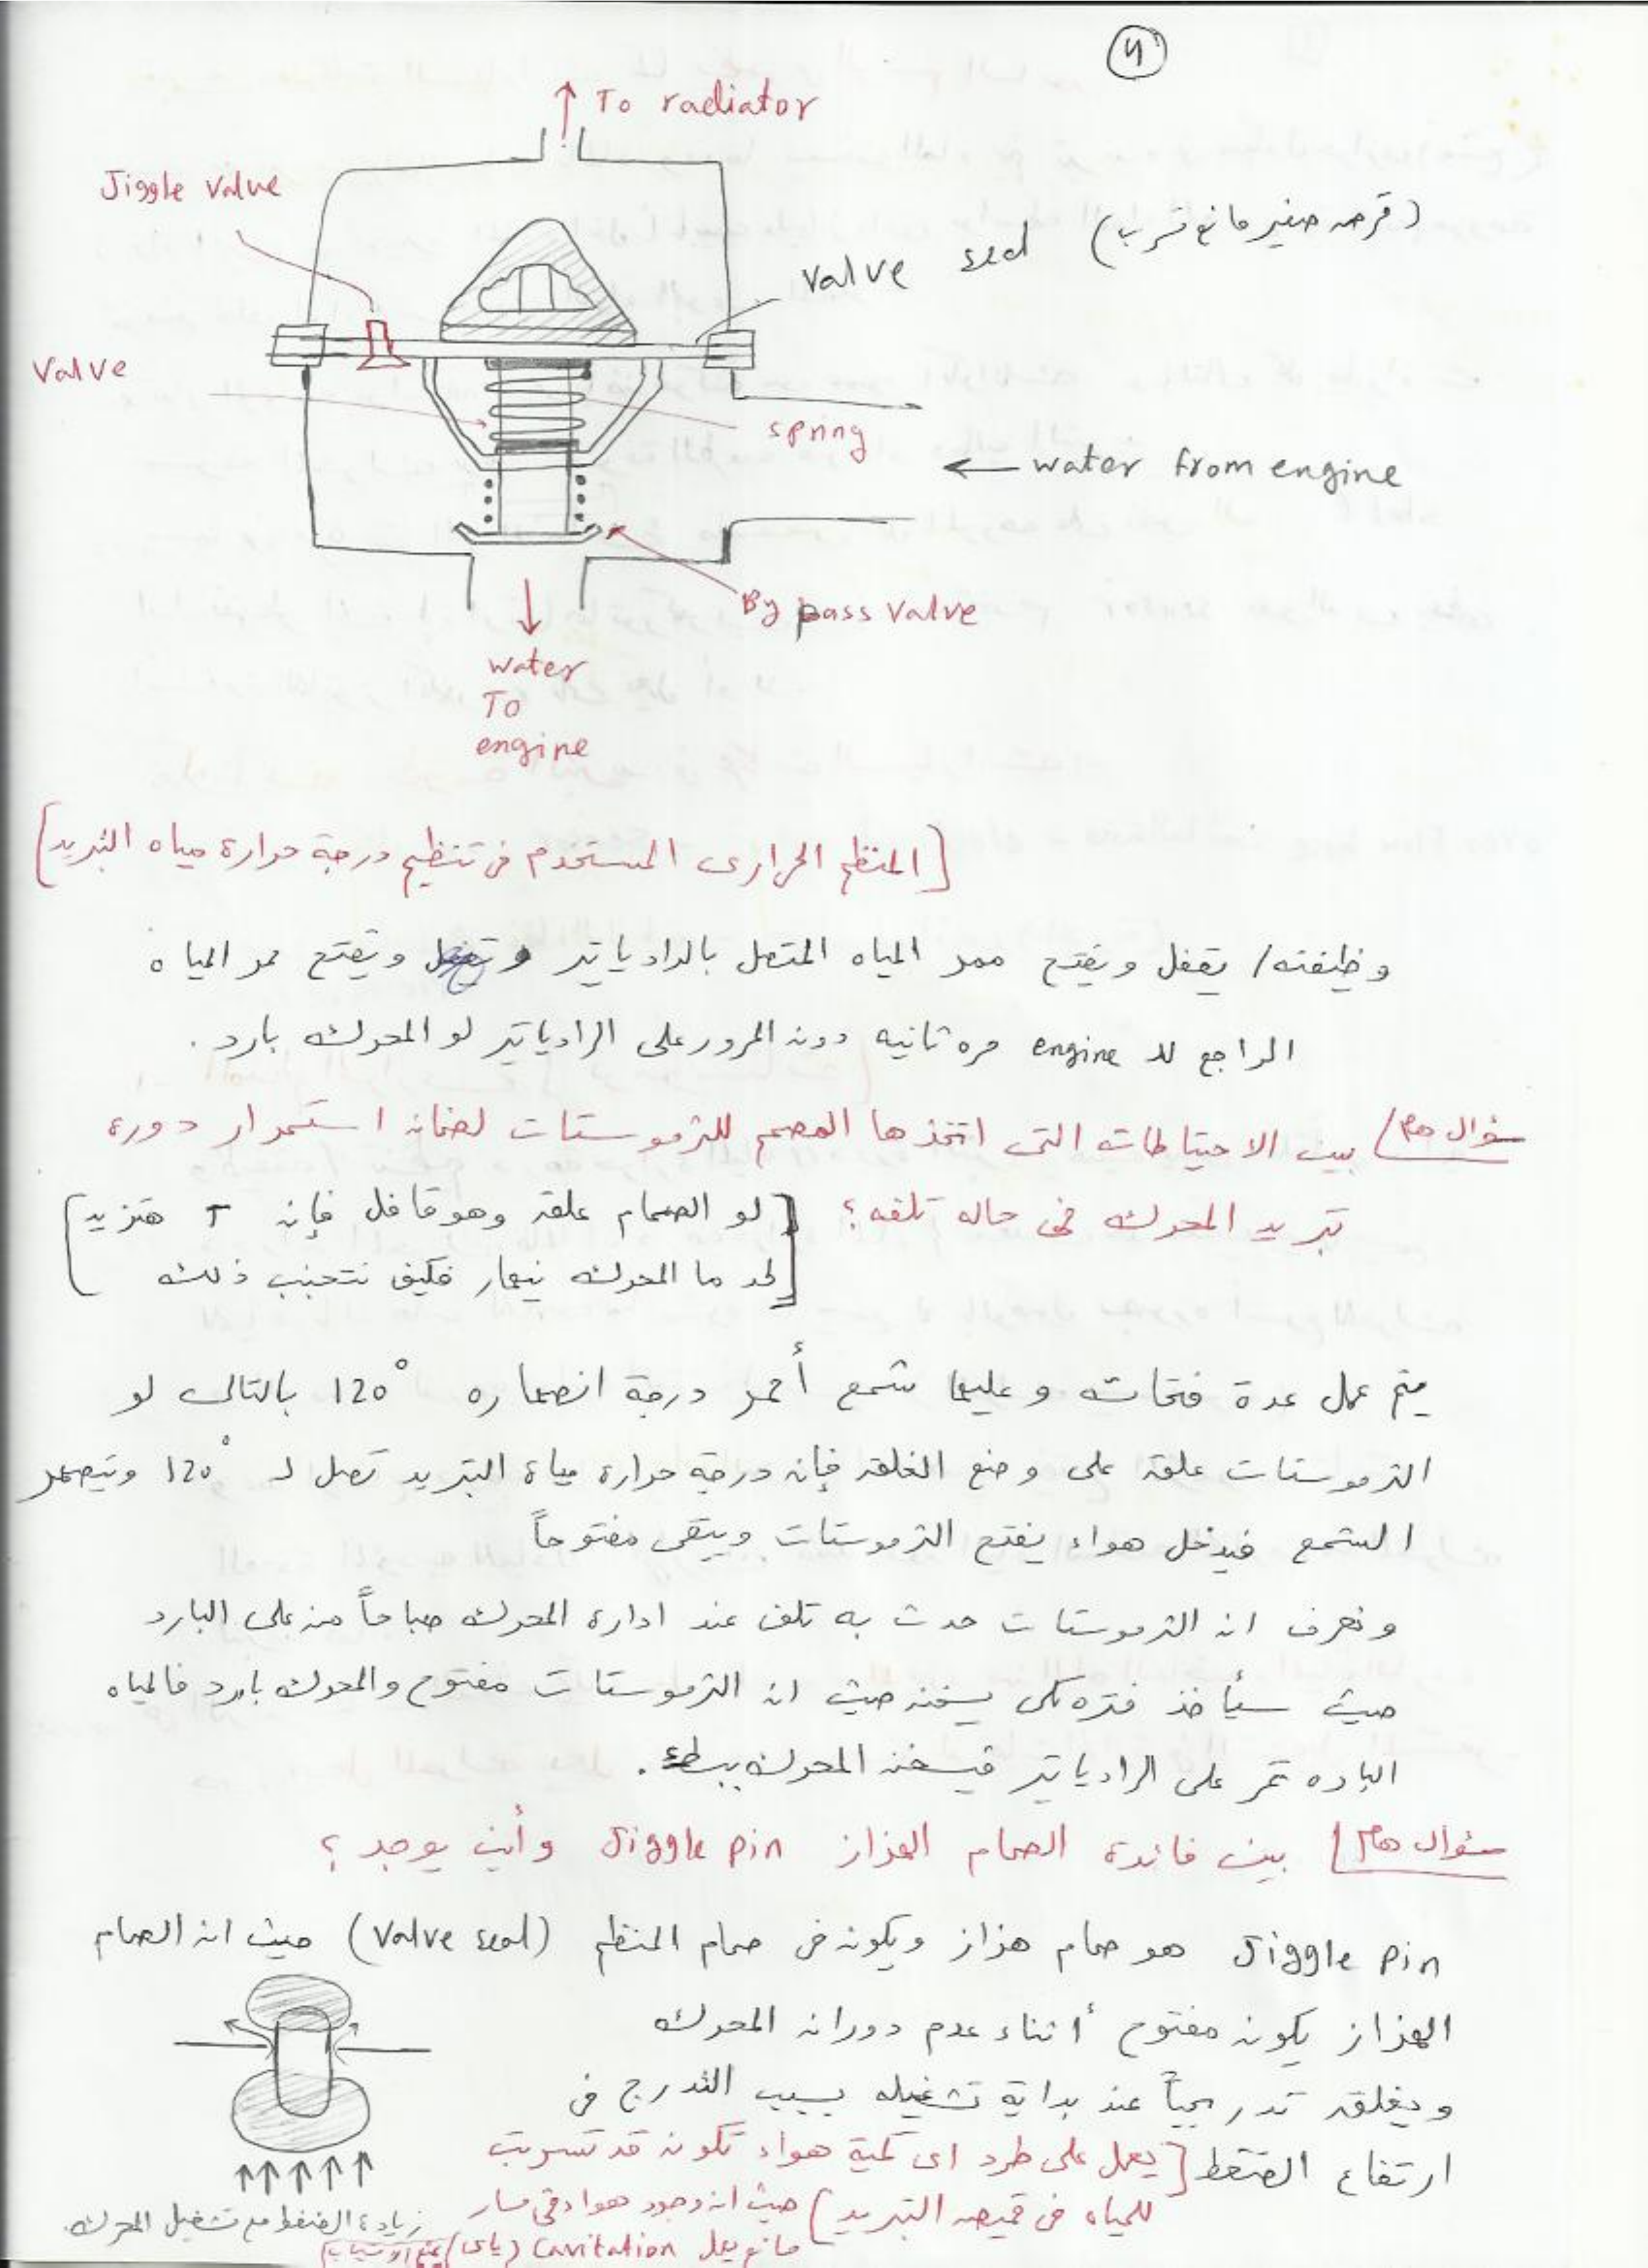 4
To radiator
Jiggle valve
valve seal (قرص صغير مانع تسرب)
valve
spring
← water from engine
By pass valve
water
To
engine
[المنظم الحرارى المستخدم فى تنظيم درجة حرارة مياه التبريد]
وظيفته/ يقفل ويفتح ممر المياه المتصل بالرادياتير ويفتح ممر المياه
الراجع لل engine مره ثانيه دون المرور على الرادياتير لو المحرك بارد .
سؤال هام/ بين الاحتياطات التى اتخذها المصمم للثرموستات لضمان استمرار دورة
تبريد المحرك فى حاله تلفه؟ [لو الصمام علق وهو قافل فإن T هتزيد
لحد ما المحرك فكيف نتجنب ذلك]
يتم عمل عدة فتحات وعليها شمع أحمر درجة انصهاره 120° بالتالى لو
الثرموستات علق على وضع الغلق فإن درجة حرارة مياة التبريد تصل لـ 120° وينصهر
الشمع فيدخل هواء يفتح الثرموستات ويبقى مفتوحاً
ونعرف ان الثرموستات حدث به تلف عند ادارة المحرك صباحاً من على البارد
حيث سيأخذ فتره لكى يسخن حيث ان الثرموستات مفتوح والمحرك بارد فالمياه
البارده تمر على الرادياتير فيسخن المحرك ببطء.
سؤال هام/ بين فائدة الصمام الهزاز Jiggle pin وأين يوجد ؟
Jiggle pin هو صمام هزاز ويكون فى صمام المنظم (valve seal) حيث ان الصمام
الهزاز يكون مفتوح أثناء عدم دوران المحرك
ويغلق تدريجياً عند بداية تشغيله بسبب التدرج فى
ارتفاع الضغط [يعمل على طرد اى كمية هواء تكون قد تسربت
للمياه فى قميص التبريد] حيث ان وجود هواء فى مسار
مانع يعمل cavitation
زيادة الضغط مع تشغيل المحرك.